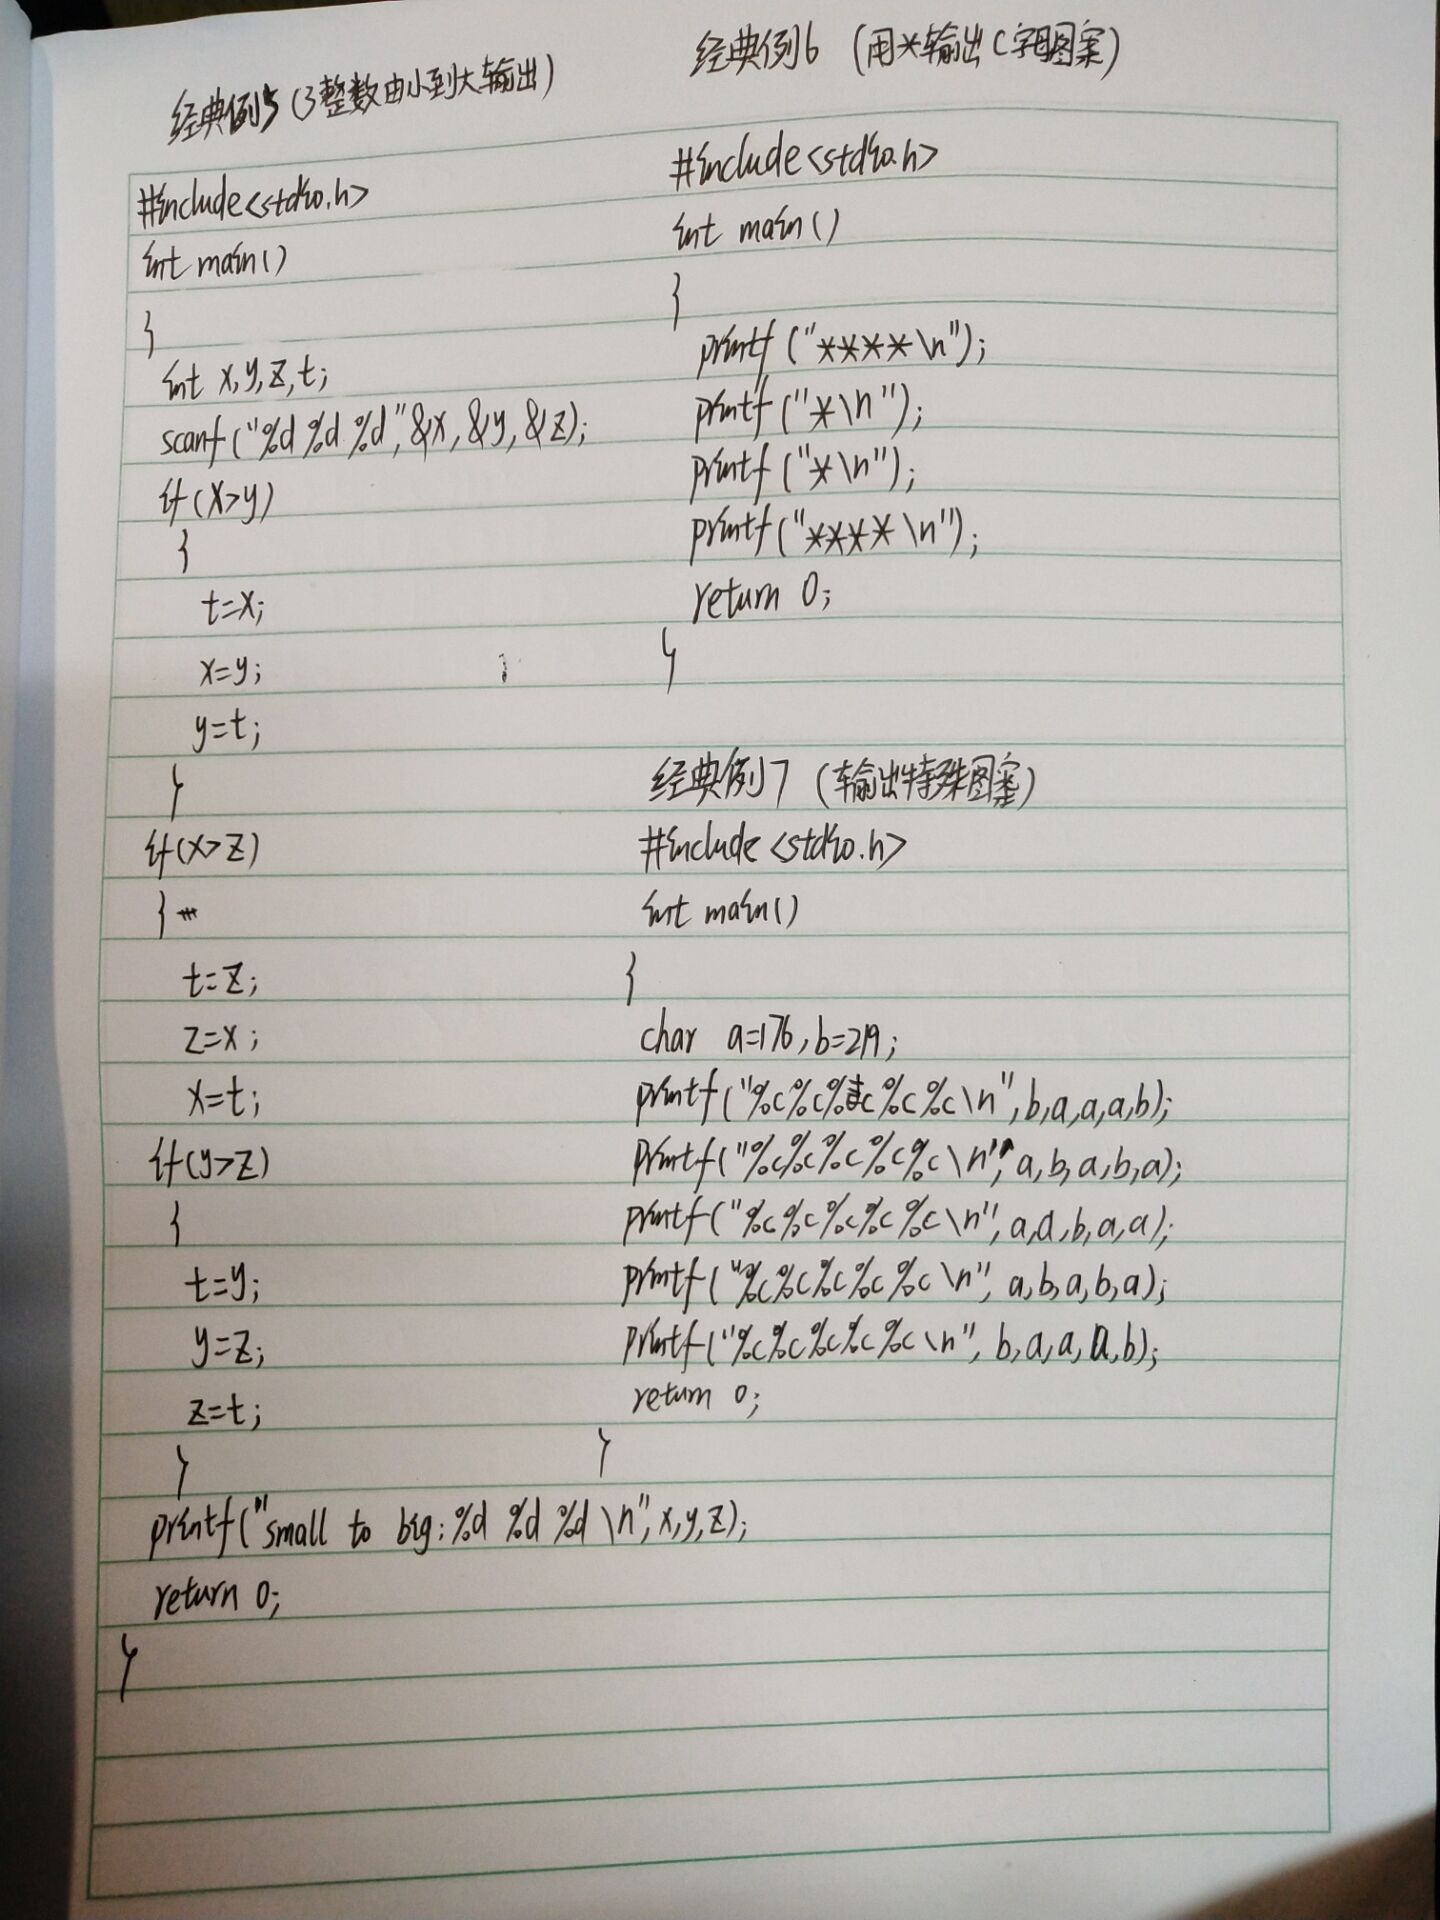 经典例5（3整数由小到大输出）
#include<stdio.h>
int main()
{
int x,y,z,t;
scanf("%d %d %d",&x,&y,&z);
if(x>y)
{
t=x;
x=y;
y=t;
}
if(x>z)
{
t=z;
z=x;
x=t;
if(y>z)
{
t=y;
y=z;
z=t;
}
printf("small to big:%d %d %d \n",x,y,z);
return 0;
}
经典例6（用*输出C字母图案）
#include<stdio.h>
int main()
{
printf("****\n");
printf("*\n");
printf("*\n");
printf("****\n");
return 0;
}
经典例7（输出特殊图案）
#include<stdio.h>
int main()
{
char a=176,b=219;
printf("%c%c%c%c%c\n",b,a,a,a,b);
printf("%c%c%c%c%c\n",a,b,a,b,a);
printf("%c%c%c%c%c\n",a,a,b,a,a);
printf("%c%c%c%c%c\n",a,b,a,b,a);
printf("%c%c%c%c%c\n",b,a,a,a,b);
return 0;
}